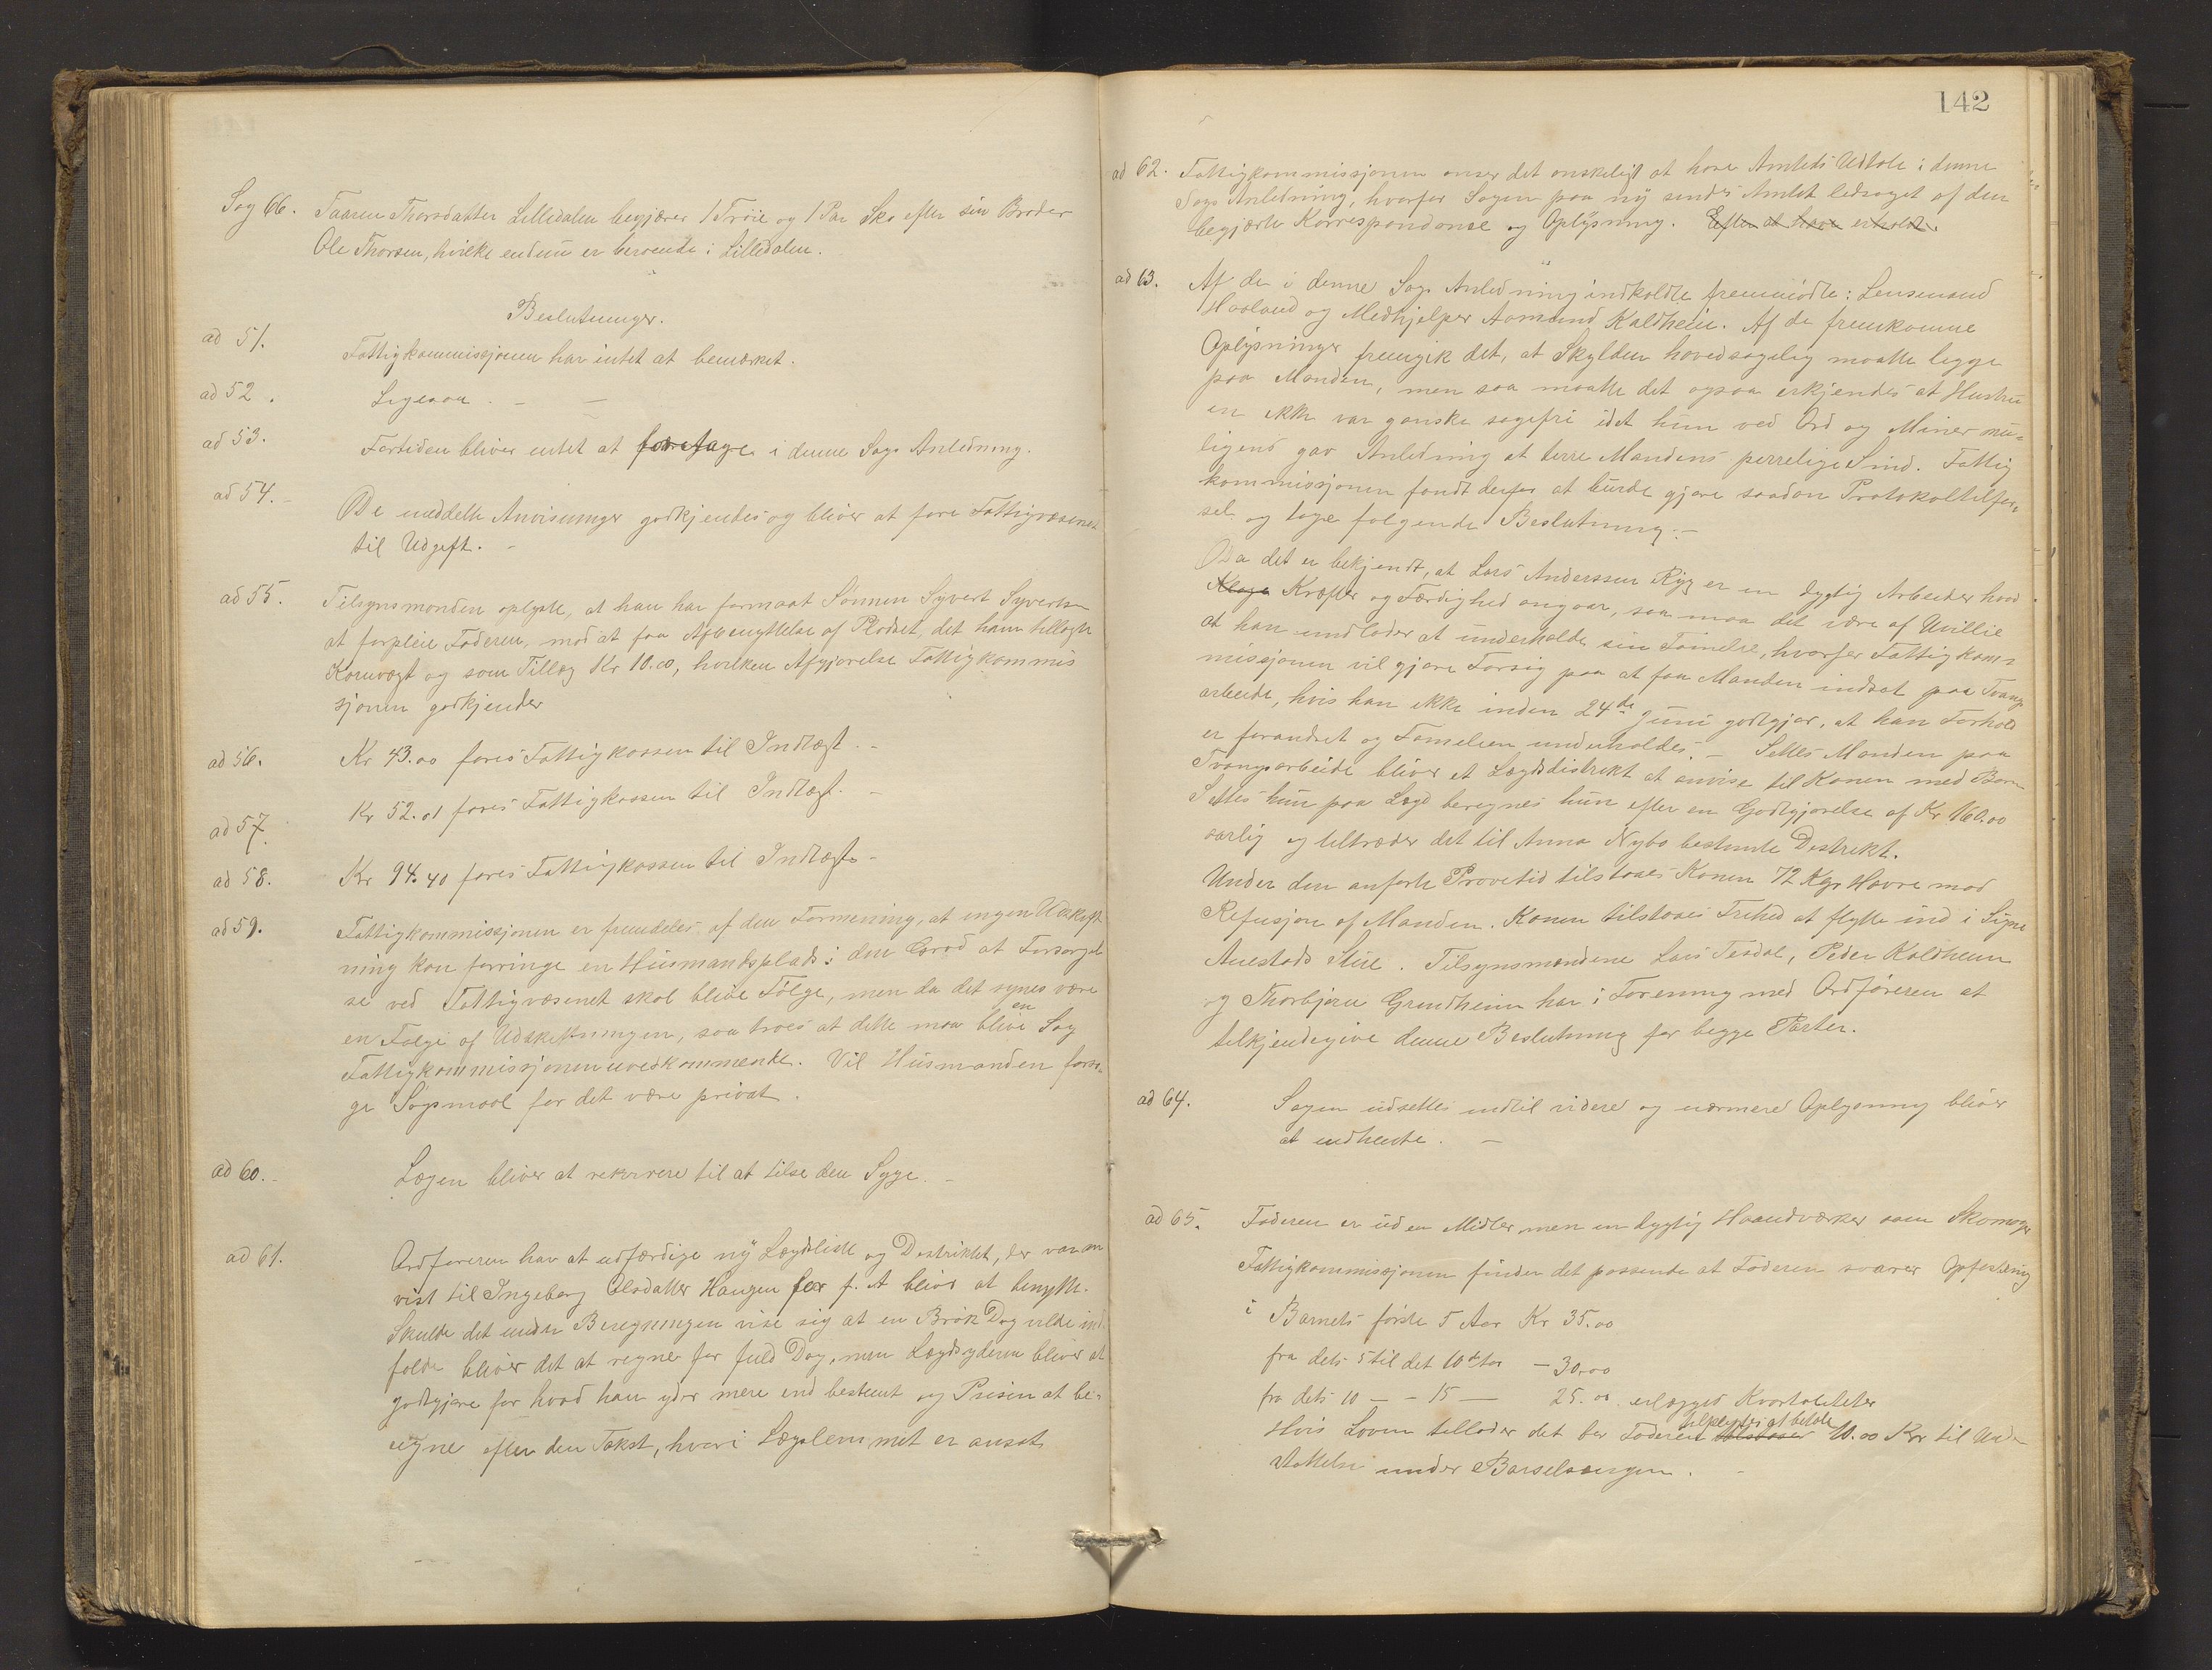 Sag 66. Taaran Thorsdatter Lilledalen begjærer 1 Trøie og 1 Par Sko efter sin Broder
Ole Thorsen, hvilke endnu er beroende i Lilledalen.
Beslutninger.
ad 51. Fattigkommissjonen har intet at bemærket.
ad 52. Ligesaa. — —
ad 53. Fortiden bliver intet at foretage i denne Sags Anledning.
ad 54. De meddelte Anvisninger godkjendes og bliver at føre Fattigvæsenet
til Udgift. –
ad 55. Tilsynsmanden oplyste, at han har formaat Sønnen Syvert Syvertsen
at forpleie Faderen, mod at faa Afbenyttelse af Pladset, det ham tillagte
Kornvægt og som Tillæg Kr 10.00, hvilken Afgjørelse Fattigkommis
sjonen godkjender
ad 56. Kr 43.00 føres Fattigkassen til Indtægt. –
ad 57. Kr 52.01 føres Fattigkassen til Indtægt. –
ad 58. Kr 94.40 føres Fattigkassen til Indtægt –
ad 59. Fattigkommissjonen er fremdeles af den Formening, at ingen Udskift
ning kan forringe en Husmandsplads i den Grad at Forsørgel
se ved Fattigvæsenet skal blive Følge, men da det synes være
en Følge af Udskiftningen, saa troes at dette maa blive en Sag
Fattigkommissjonen uvedkommende. Vil Husmanden forsø-
ge Søgsmaal faar det være privat.
ad 60. – Lægen bliver at rekvirere til at tilse den Syge. –
ad 61. Ordføreren har at udfærdige ny Lægdsliste og Destriktet, der var an
vist til Ingeborg Olsdatter Haugen før f. A bliver at benytte.
Skulde det under Beregningen vise sig at en Brøk Dag vilde ind
falde bliver det at regne for fuld Dag, men Lægdsyderen bliver at
godtgjøre for hvad han yder mere end bestemt og Prisen at be-
regne efter den Takst, hvori Lægslemmet er ansat.
142
ad 62. Fattigkommissjonen anser det ønskeligt at have Amtets Udtale i denne
Sags Anledning, hvorfor Sagen paa ny sendes Amtet ledsaget af den
begjærte Korrespondance og Oplysning. Efter at have erholdt.
ad 63. Af de i denne Sags Anledning indkaldte fremmødte: Lensmand
Havland og Medhjelper Aamund Kaldheim. Af de fremkomne
Oplysninger fremgik det, at Skylden hovedsagelig maatte legge
paa Manden, men saa maatte det ogsaa erkjendes at Hustru
en ikke var ganske sagefri idet hun ved Ord og Miner mu-
ligens gav Anledning at terre Mandens perrelige Sind. Fattig
kommissjonen fandt derfor at burde gjøre saadan Protokoltilfør-
sel og tage følgende Beslutning: –
Da det er bekjendt, at Lars Anderssen Ryg er en dygtig Arbeider hvad
Klage Kræfter og Færdighed angaar, saa maa det være af Uvillie
at han undlader at underholde sin Famelie, hvorfor Fattigkom-
missjonen vil gjøre Forsøg paa at faa Manden indsat paa Tvangs
arbeide, hvis han ikke inden 24de Juni godtgjør, at han Forhold
er forandret og Famelien underholdes. – Settes Manden paa
Tvangsarbeide bliver et Lægdsdistrikt at anvise til Konen med Børn
Settes hun paa Lægd beregnes hun efter en Godtgjørelse af Kr 160.00
aarlig og tiltræder det til Anna Nybø bestemte Destrikt.
Under den anførte Prøvetid tilstaaes Konen 72 Kgr Havre mod
Refusjon af Manden. Konen tilstaaes Frihed at flytte ind i Signe
Auestads Stue. Tilsynsmændene Lars Tesdal, Peder Kaldheim
og Thorbjørn Grindheim har i Forening med Ordføreren at
tilkjendegive denne Beslutning for begge Parter.
ad 64. Sagen udsettes indtil videre og nærmere Oplysning bliver
at indhente. –
ad 65. Faderen er uden Midler, men en dygtig Haandværker som Skomager
Fattigkommissjonen finder det passende at Faderen svarer Opfostring
i Barnets første 5 Aar Kr 35.00
fra dets 5 til det 10de Aar — 30.00
fra dets 10 — – 15 — 25.00 erlægges Kvartaliter
Hvis Loven tillader det bør Faderen tilstaaes tilpligtes at betale 10.00 Kr til Un-
støttelse under Barselsengen. –